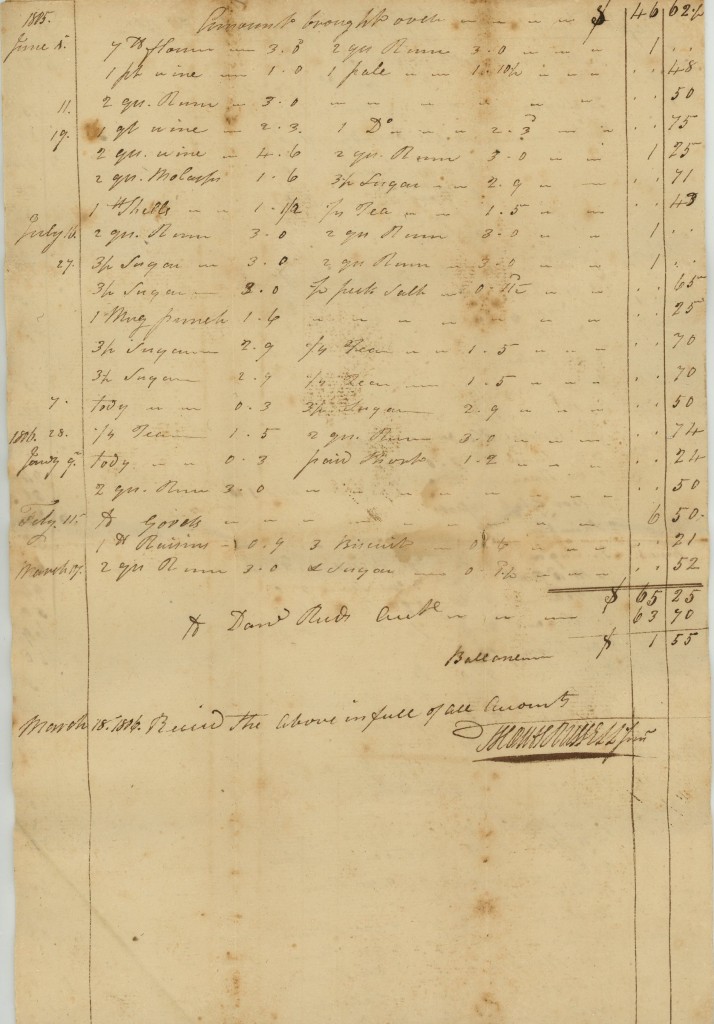 1805. Amount brought over $ 46 62½
June 8. 7 lb flour 3.6 2 qts Rum 3.0 1 . .
1 pt wine 1.0 1 pale 1.10½ . . 48
11. 2 qts. Rum 3.0 . . 50
19. 1 qt wine 2.3. 1 Do 2.3 . . 75
2 qts. wine 4.6 2 qts. Rum 3.0 1 25
2 qts. Molasses 1.6 3 lb Sugar 2.9 . . 71
1 lb Shells 1.1½ ¼ Tea 1.5 . . 43
July 16. 2 qts. Rum 3.0 2 qts Rum 3.0 1 . .
27. 3 lb Sugar 3.0 2 qts Rum 3.0 1 . .
3 lb Sugar 3.0 ½ peck Salt 0.11 . . 65
1 Mug punch 1.6 . . 25
3 lb Sugar 2.9 ¼ Tea 1.5 . . 70
3 lb Sugar 2.9 ¼ Tea 1.5 . . 70
7. tody 0.3 3 lb Sugar 2.9 . . 50
1806. 28. ¼ Tea 1.5 2 qts. Rum 3.0 . . 74
Jany 9. tody 0.3 paid 1.2 . . 24
2 qts. Rum 3.0 . . 50
Feby. 11. To Goods 6 50.
1 lb Raisins 0.9 3 Biscuit 0.6 . . 21
March 17. 2 qts Rum 3.0 & Sugar . . 52
$ 65 25
63 70
Ballance $ 1 55
March 18. 1806. Reciud The above in full of all Acounts